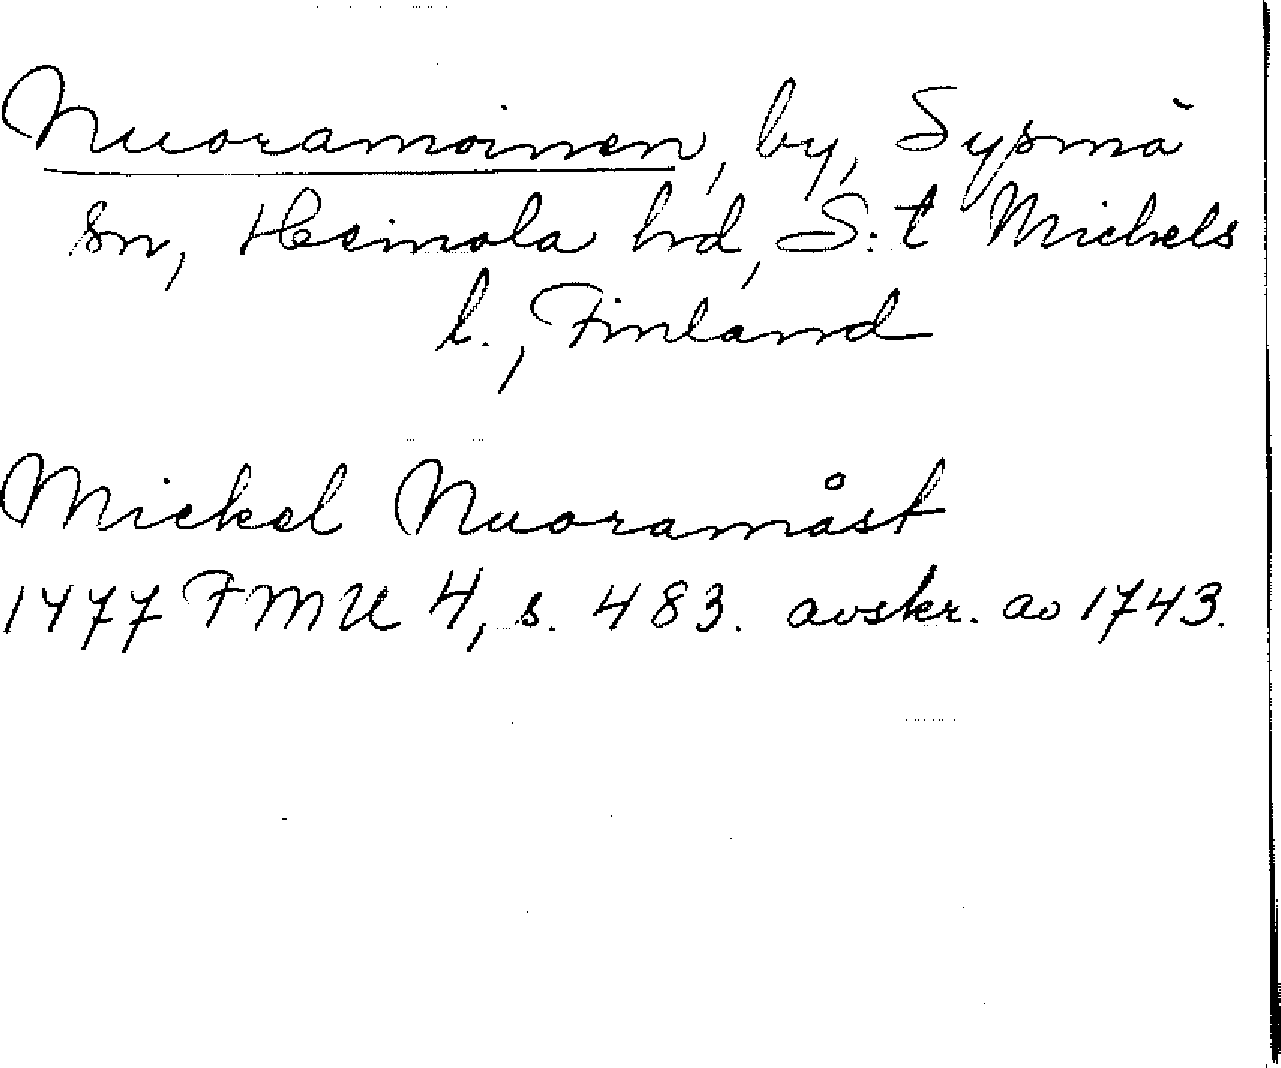 Nuoramoinen, by, Sysmä
sn, Heinola hd, S:t Michels
l., Finland
Mickel Nuoramåst
1477 FMU 4, s. 483. avskr. av 1743.